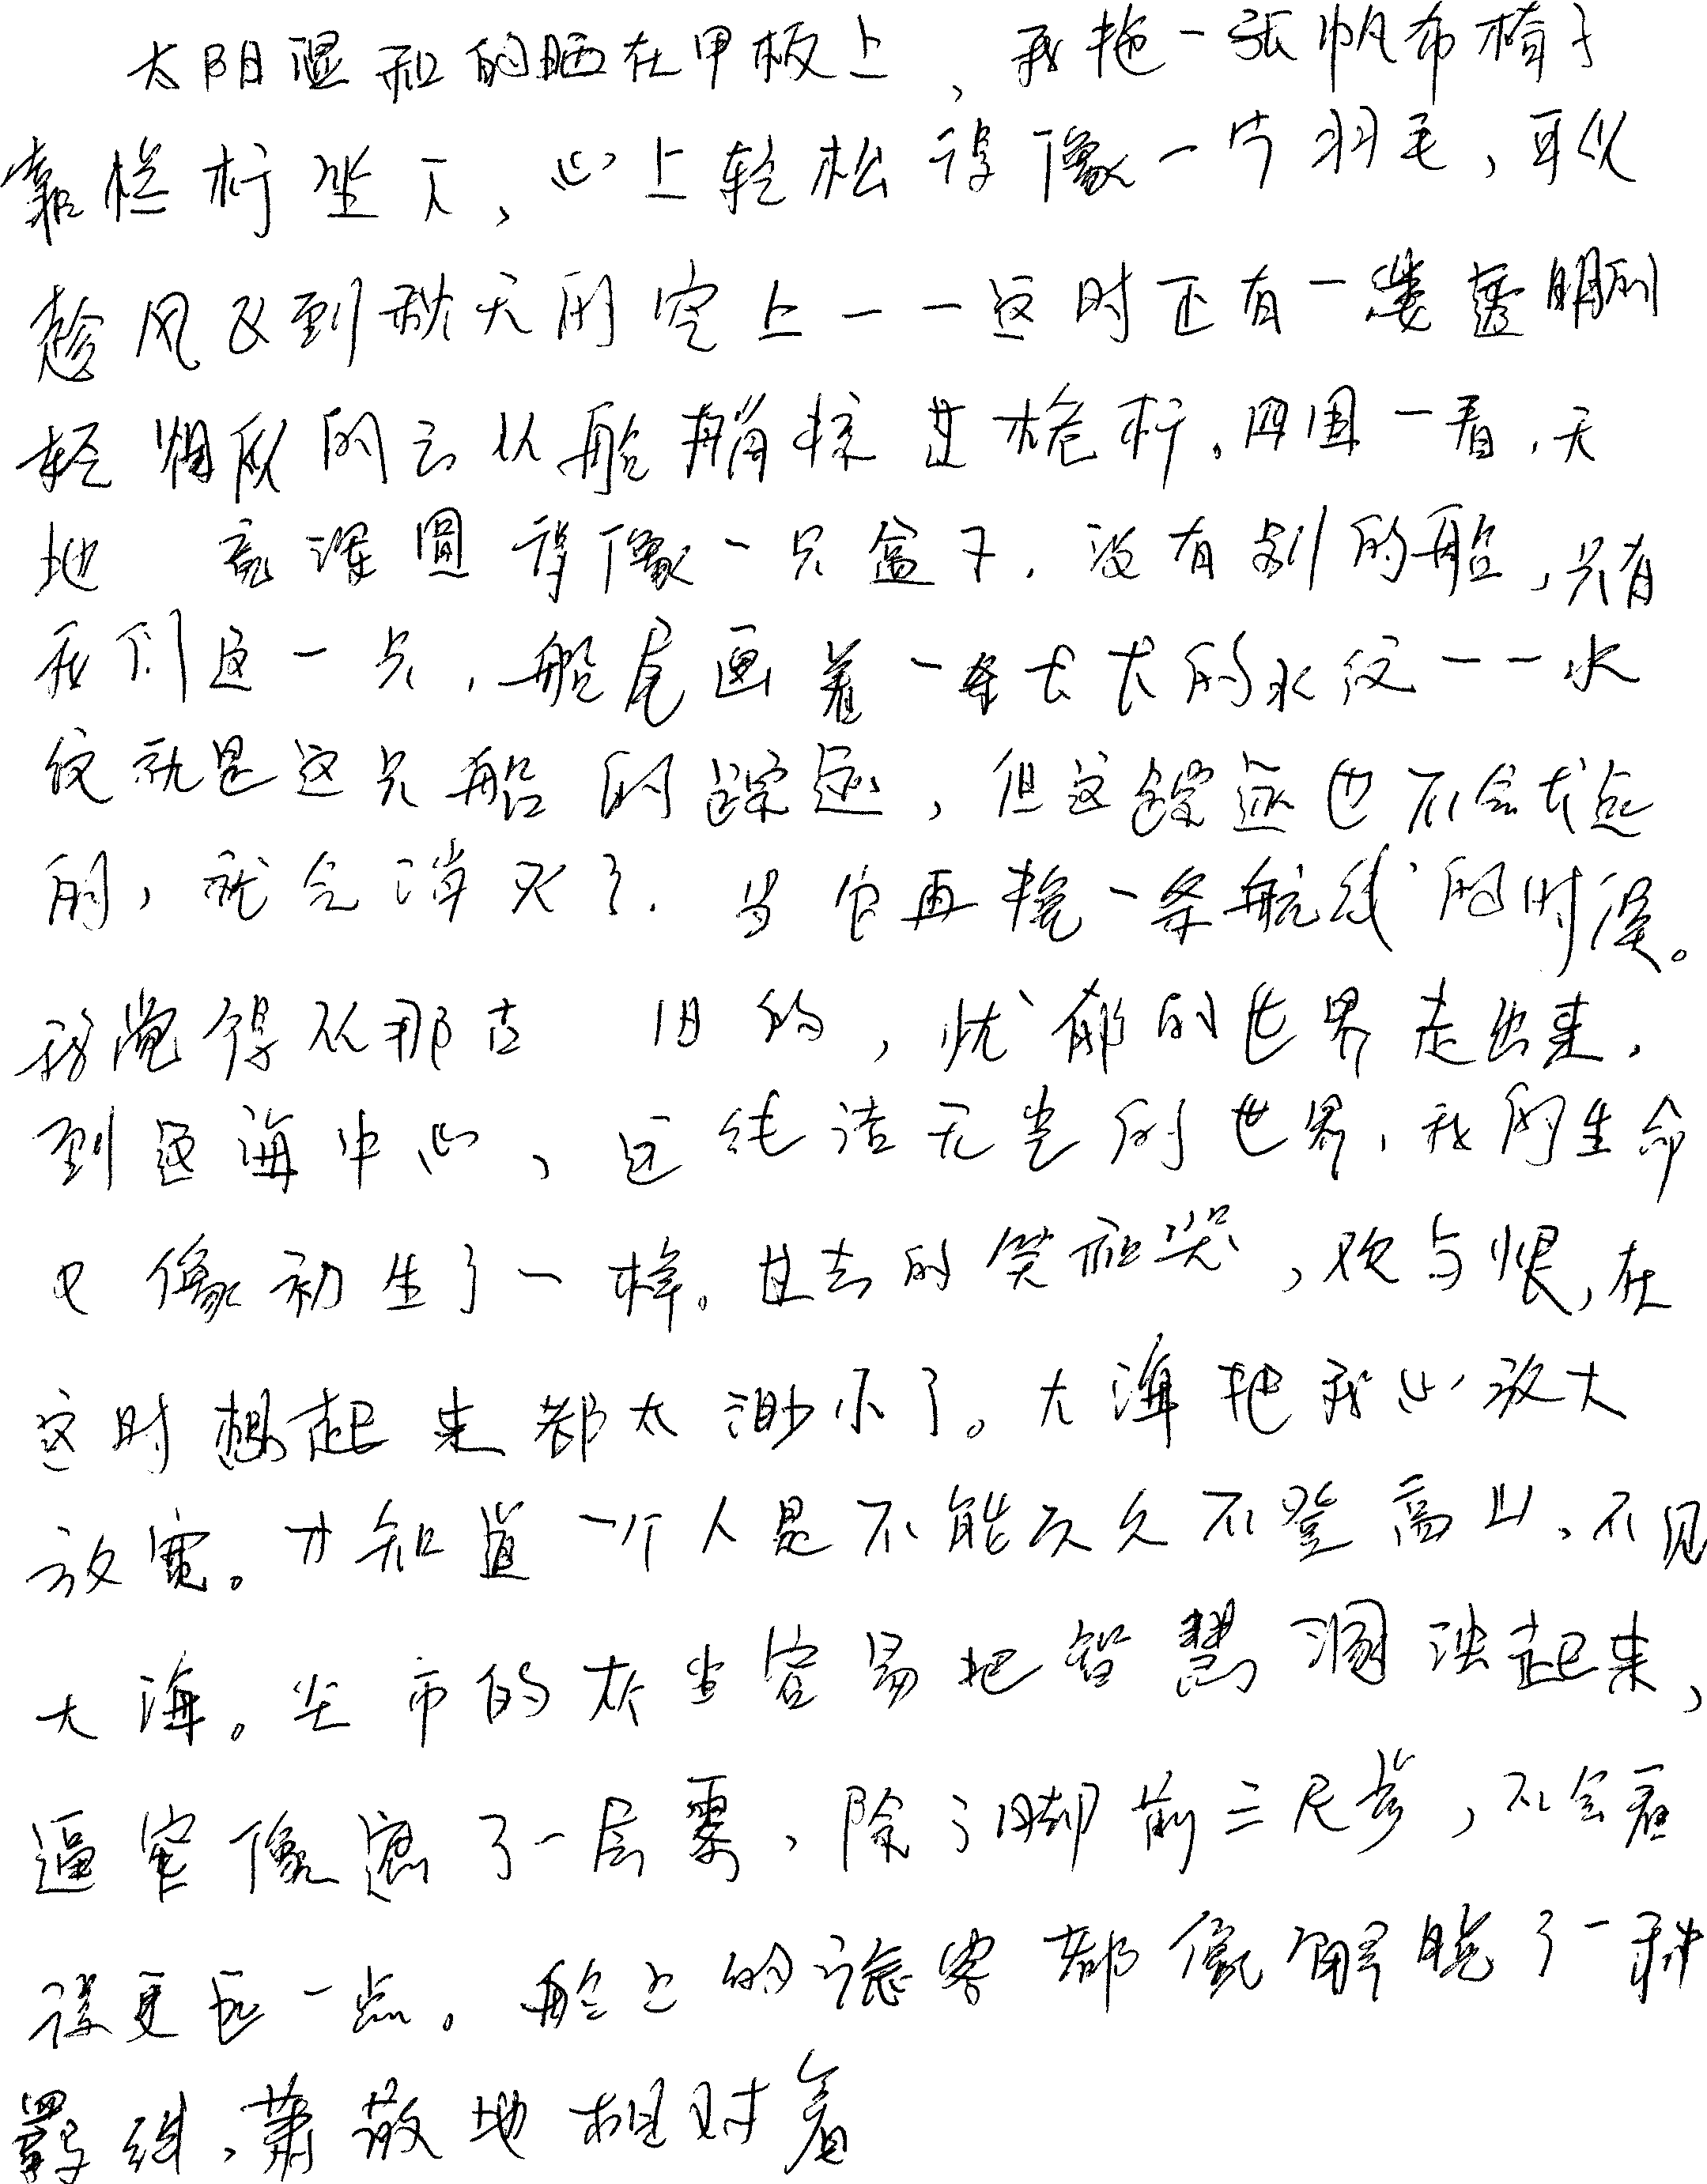 太阳温和的晒在甲板上，我拖一张帆布椅子
靠栏杆坐下，心上轻松得像一片羽毛，可以
趁风飞到秋天的空上——这时正有一缕透明的
轻烟似的云从船艄掠过桅杆。四围一看，天
地 竟深圆得像一只盒子。没有别的船，只有
我们这一只，船尾画着一条长长的水纹——水
纹就是这只船的踪迹，但这踪迹也不会长远
的，就会消灭了。当它再换一条航线的时候。
我觉得从那古 旧的，忧郁的世界走出来，
到这海中心，这纯洁无尘的世界，我的生命
也像初生了一样。过去的笑和哭，欢与恨，在
这时想起来都太渺小了。大海把我心放大
放宽。才知道一个人是不能久久不登高山、不见
大海。尘市的灰尘容易把智慧涸浊起来，
逼窄像遮了一层雾，除了脚前三尺者，不会看
得更远一点。船上的旅客都像解脱了一种
羁绊，萧散地相对着